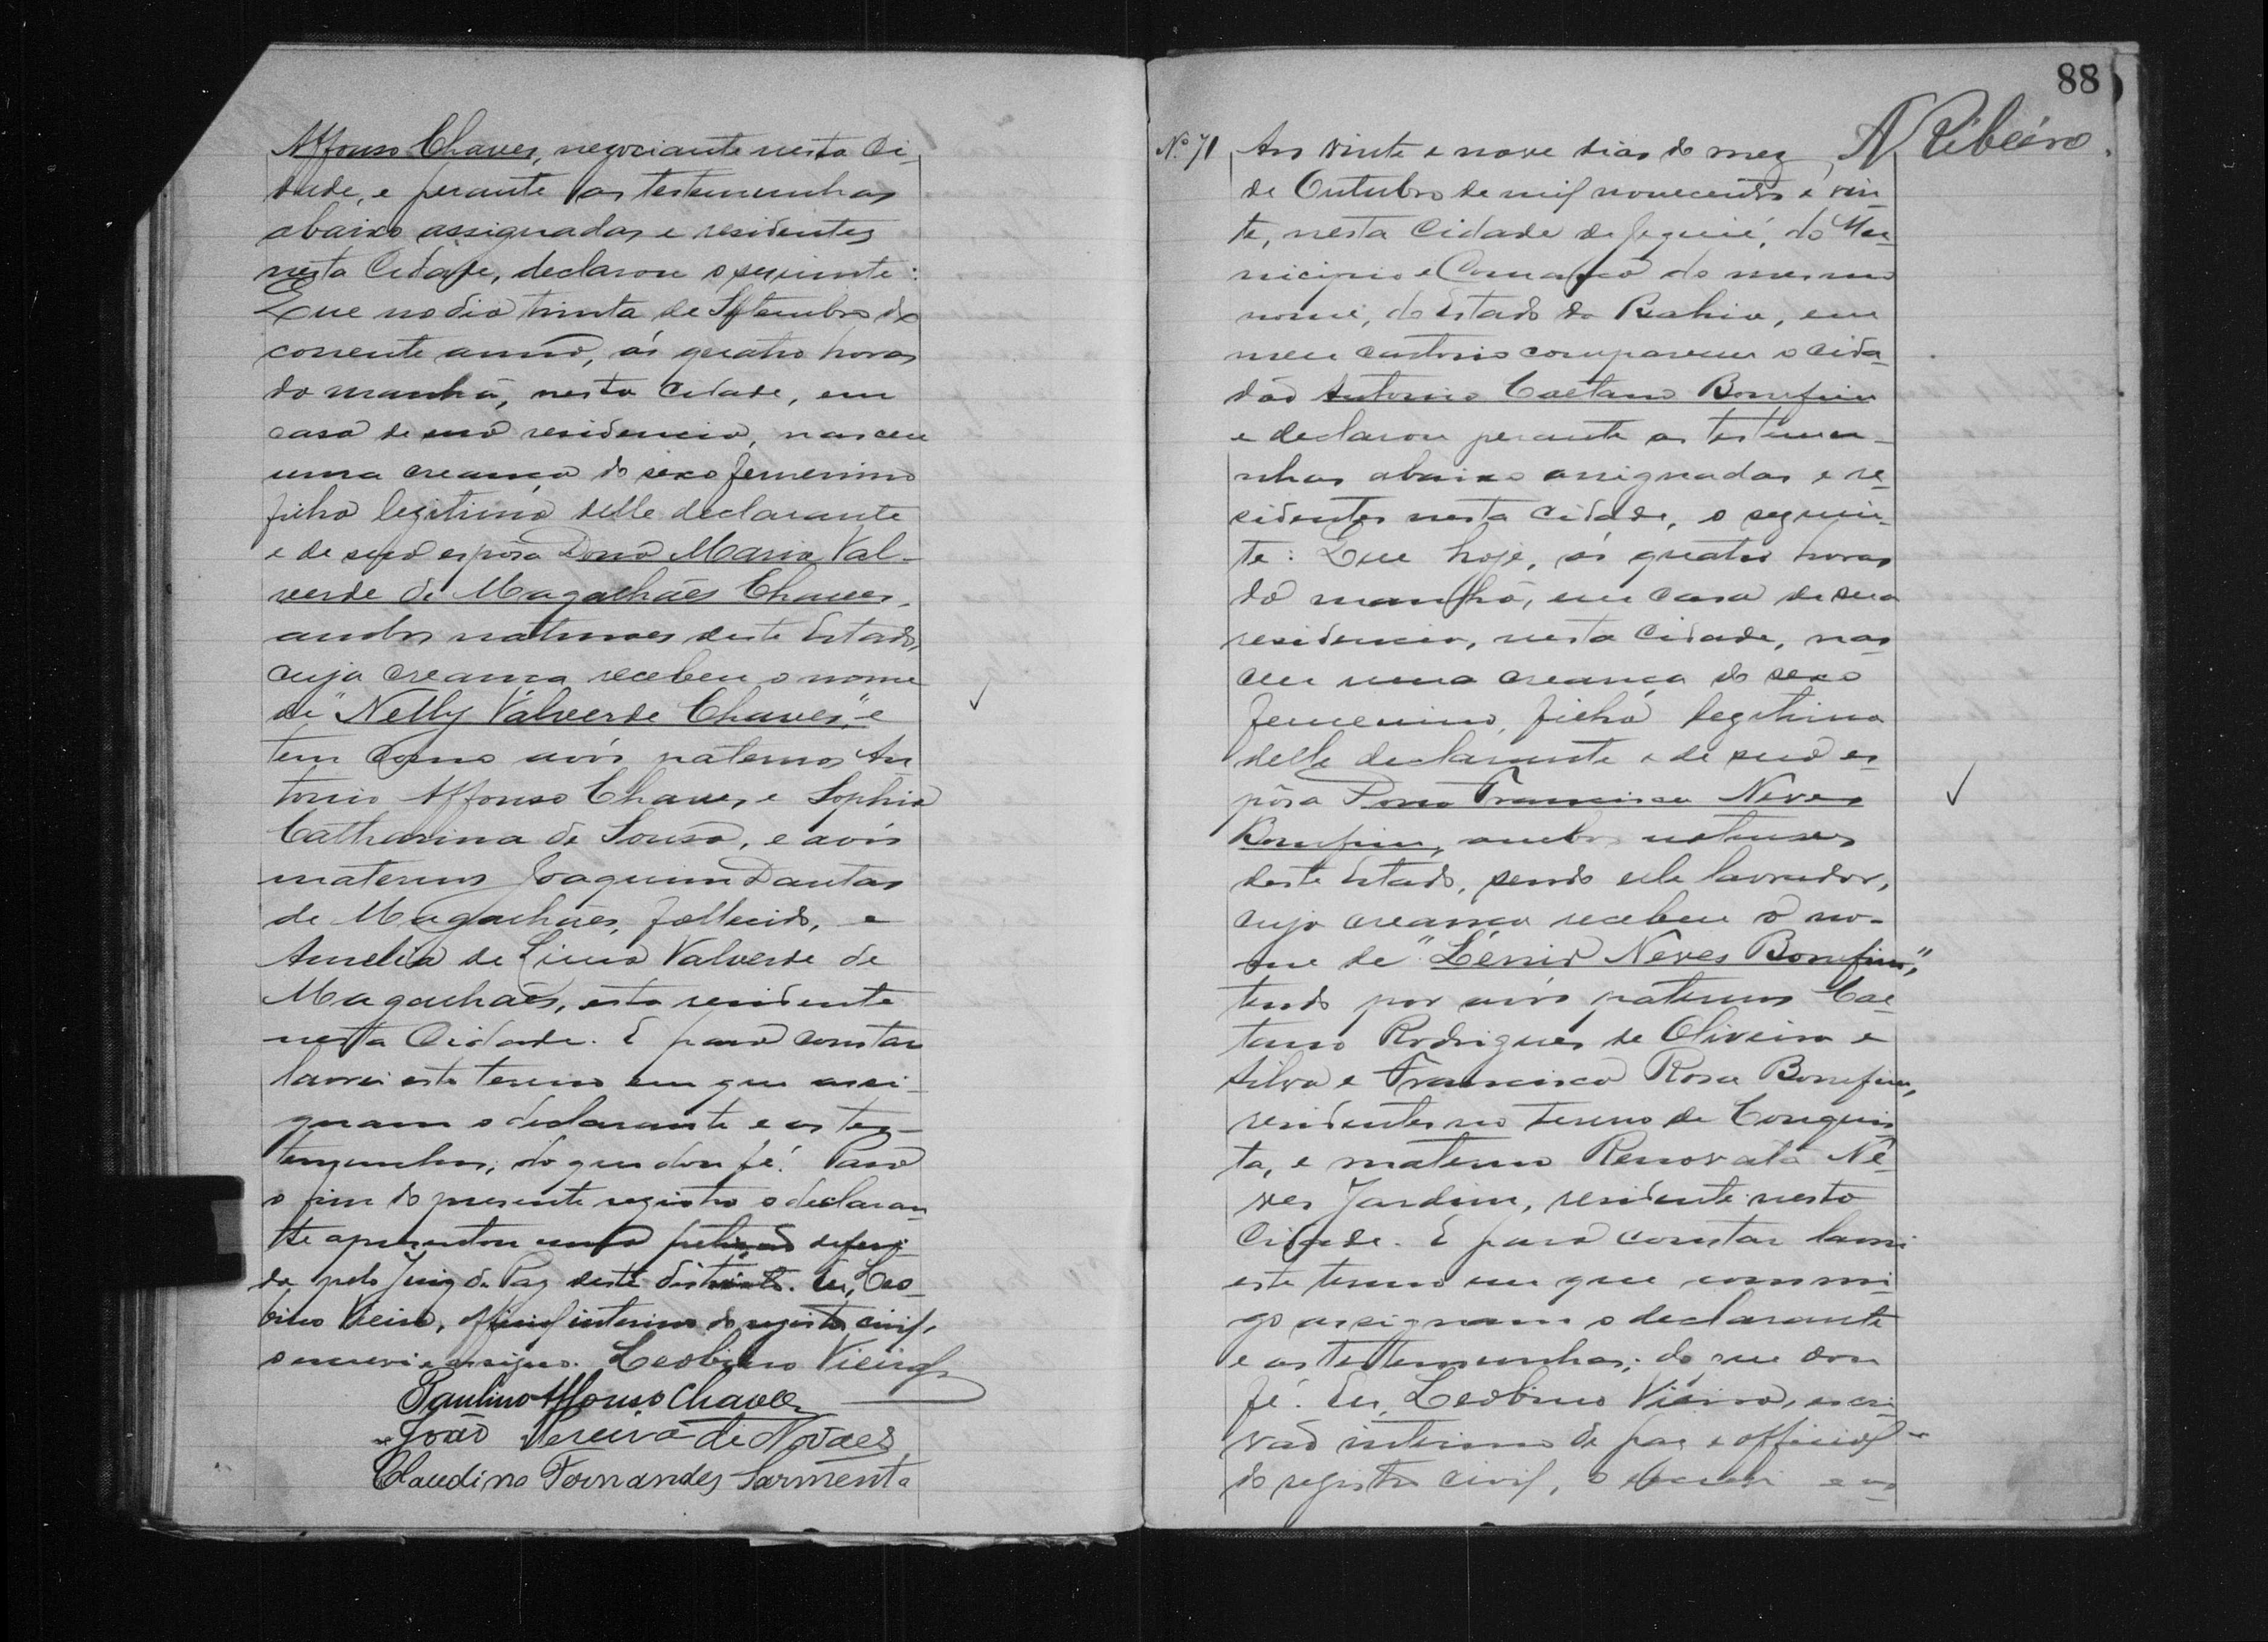 Affonso Chaves, negociante nesta Ci
dade, e perante as testemunhas
abaixo assignadas e residentes
nesta Cidade, declarou o seguinte:
Que no dia trinta de Setembro do
corrente anno, ás quatro horas
da manhã, nesta Cidade, em
casa de sua residencia, nasceu
uma creança do sexo femenino
filha legitima delle declarante
e de sua esposa Dona Maria Val-
verde de Magalhães Chaves,
ambos naturaes deste Estado,
cuja creança recebeu o nome
de "Nelly Valverde Chaves", e
tem como avós paternos An
tonio Affonso Chaves e Sophia
Catharina de Sousa, e avós
maternos Joaquim Dantas
de Magalhães, fallecido, e
Amelia de Lima Valverde de
Magalhães, esta residente
nesta Cidade. E para constar
lavrei este termo em que assi-
gnam o declarante e as tes-
temunhas; do que dou fé. Para
o fim do presente registro o declaran
te apresentou uma petição deferi-
da pelo Juiz de Paz deste districto. Eu, Leo-
bino Vieira, official interino do registro civil,
o escrevi e assigno. Leobino Vieira
Paulino Affonso Chaves
João Pereira de Novaes
Claudino Fernandes Sarmento
88
N Ribeiro.
Nº 71 Aos vinte e nove dias do mez
de Outubro de mil novecentos e vin
te, nesta Cidade de Jequié, do Mu-
nicipio e Comarca do mesmo
nome, do Estado da Bahia, em
meu cartorio compareceu o cida-
dão Antonio Caetano Bomfim
e declarou perante as testemu-
nhas abaixo assignadas e re-
sidentes nesta Cidade, o seguin-
te: Que hoje, ás quatro horas
da manhã, em casa de sua
residencia, nesta Cidade, nas
ceu uma creança do sexo
femenino, filha legitima
delle declarante e de sua es
pôsa Dona Francisca Neves
Bomfim, ambos naturaes
deste Estado, sendo elle lavrador,
cuja creança recebeu o no-
me de "Lénir Neves Bomfim",
tendo por avós paternos Cae-
tano Rodrigues de Oliveira e
Silva e Francisca Rosa Bomfim,
residentes no termo de Conquis
ta, e materna Renovata Ne-
ves Jardim, residente nesta
Cidade. E para constar lavrei
este termo em que commi-
go assignam o declarante
e as testemunhas; do que dou
fé. Eu, Leobino Vieira, escri-
vão interino de paz e official
do registro civil, o escrevi e as